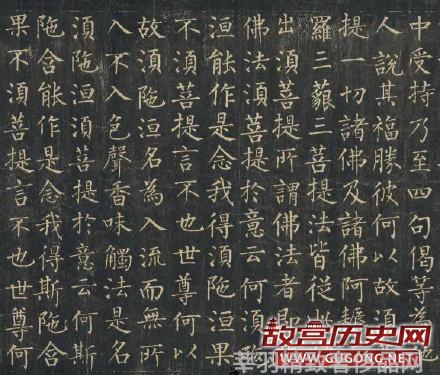 中受持乃至四句偈等為
人說其福勝彼何以故須
提一切諸佛及諸佛阿耨
羅三藐三菩提法皆從
出須菩提所謂佛法者即
佛法須菩提於意云何須
洹能作是念我得須陁洹果
不須菩提言不也世尊何以
故須陁洹名為入流而無所
入不入色聲香味觸法是名
須陁洹須菩提於意云何斯
陁含能作是念我得斯陁含
果不須菩提言不也世尊何
故宫历史网
www.GUGONG.net